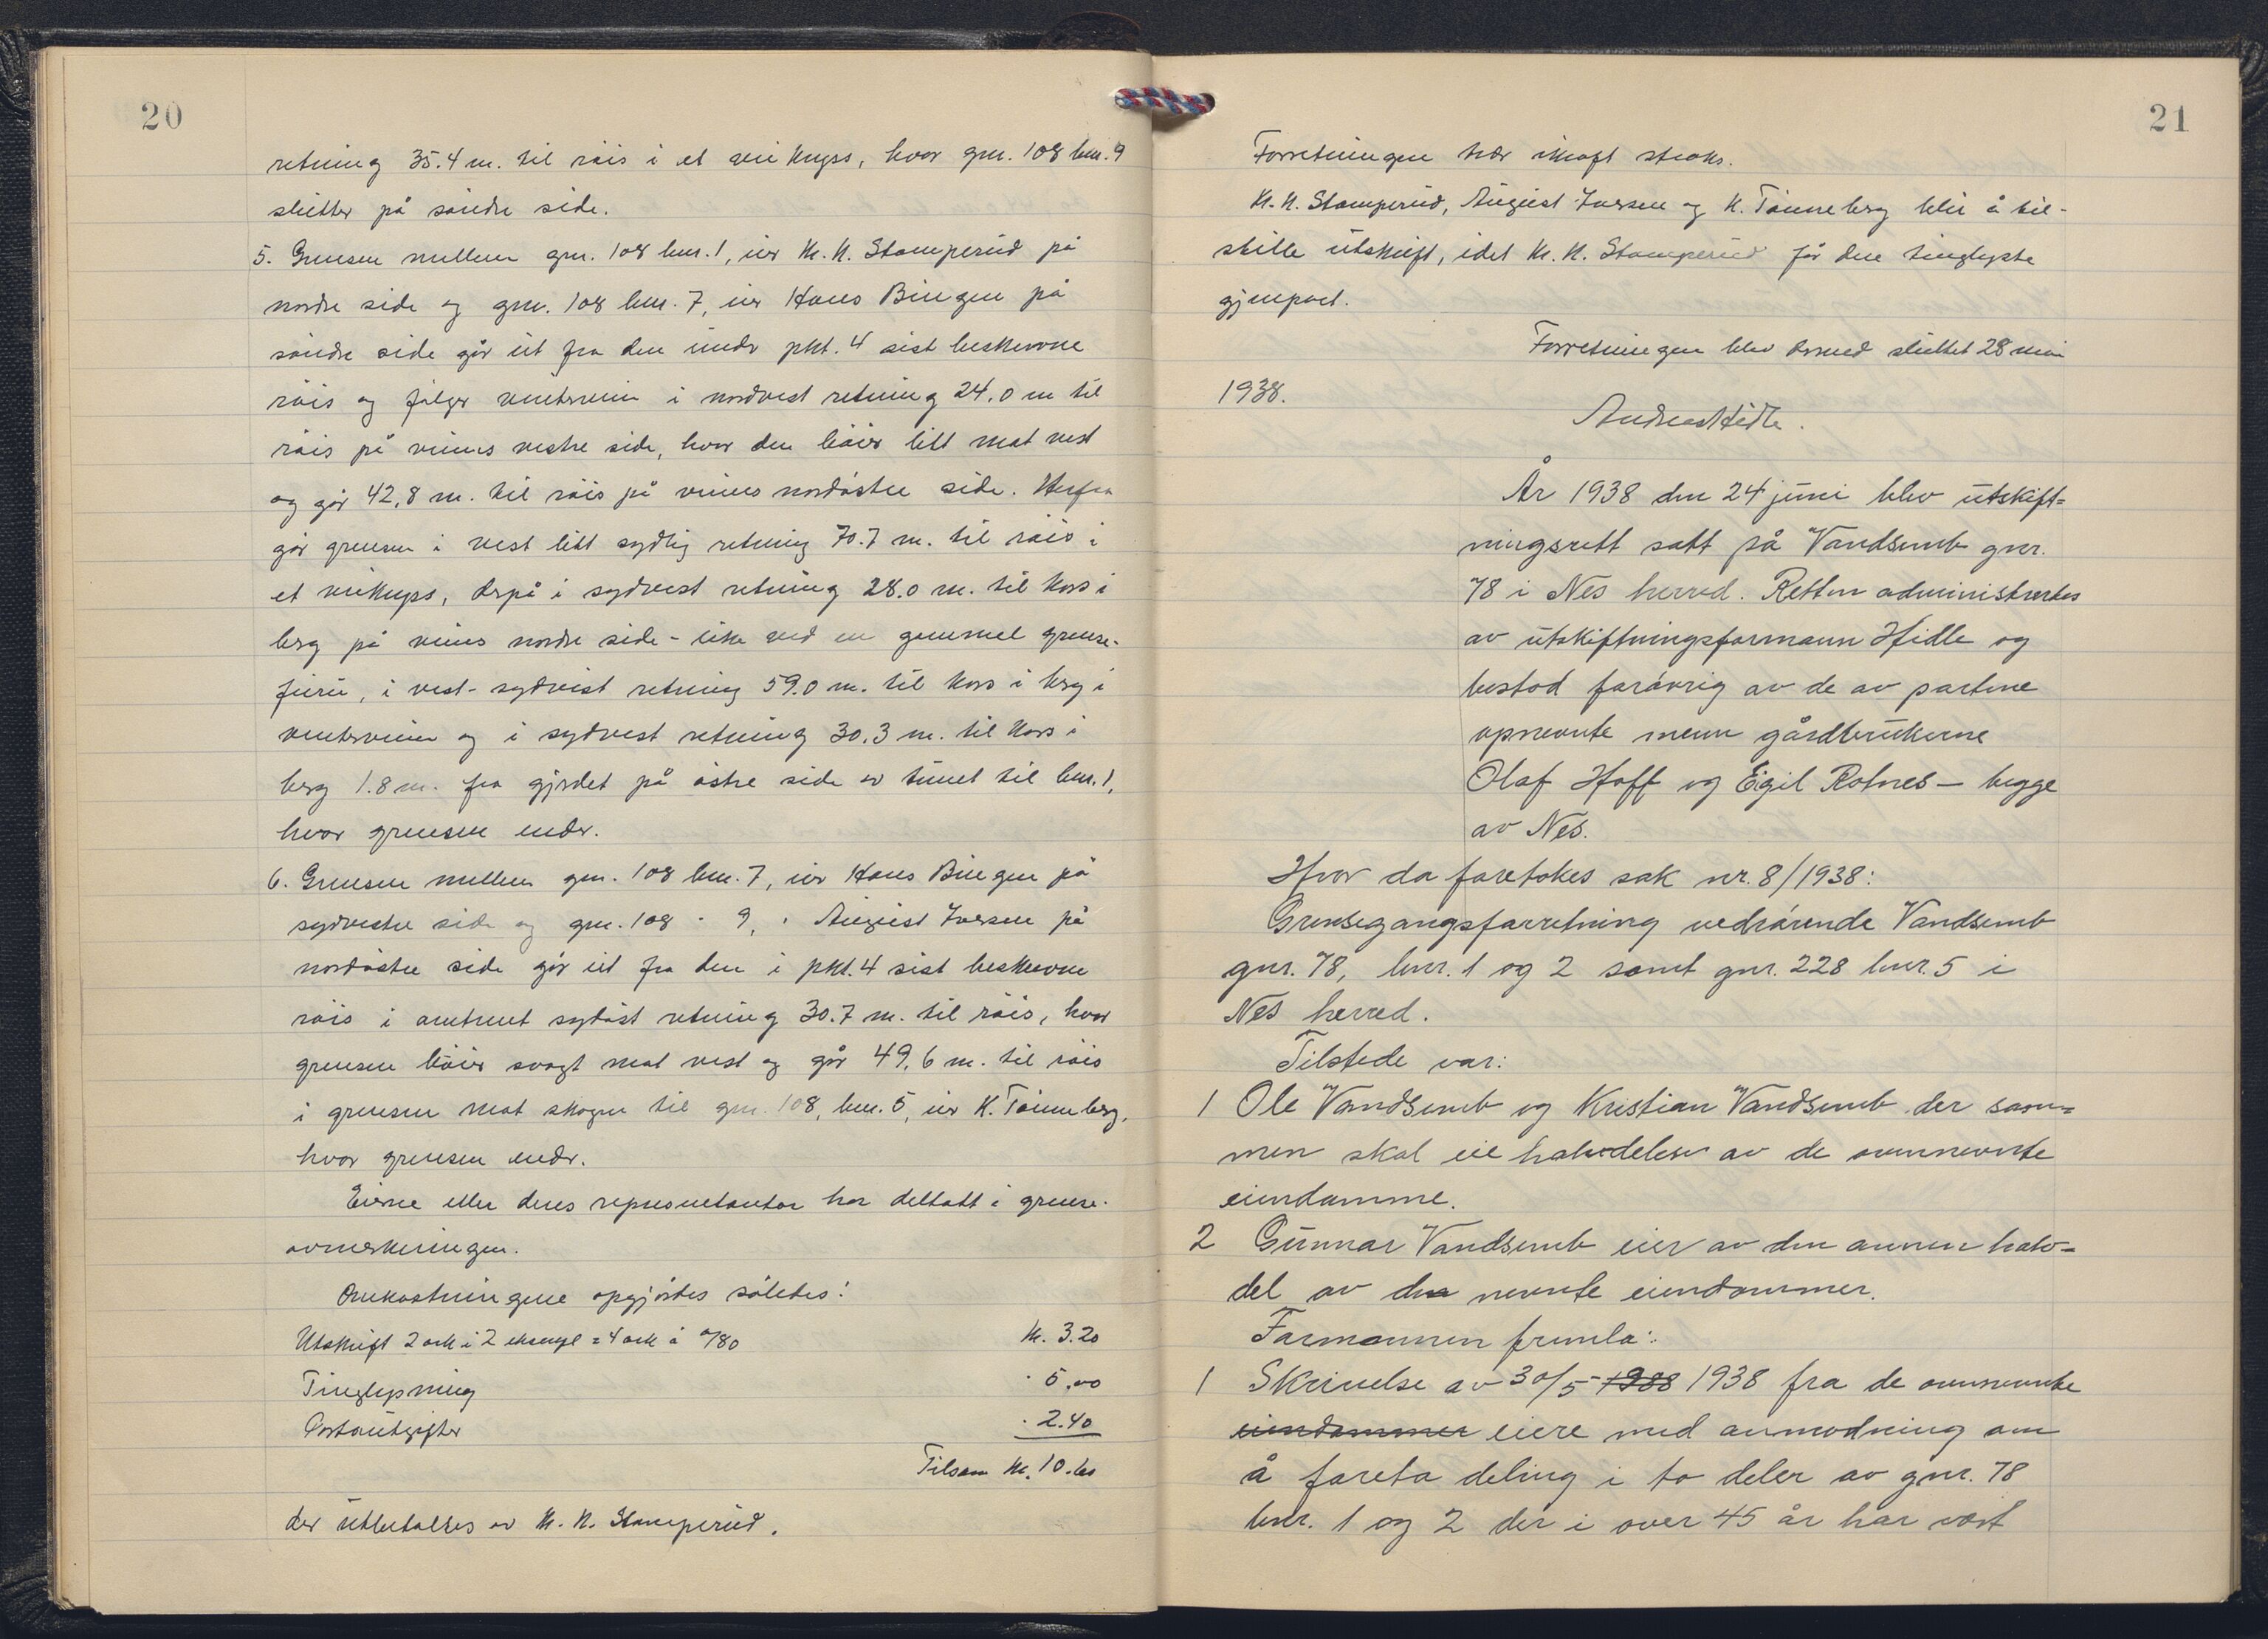 20
retning 35.4 m. til röis i et veikryss, hvor gnr. 108 bnr. 9
slutter på söndre side.
5. Grensen mellem gnr. 108 bnr. 1, eier K. N. Stomperud på
nordre side og gnr. 108 bnr. 7, eier Hans Bingen på
söndre side går ut fra den under pkt. 4 sist beskrevne
röis og fölger vinterveien i nordvest retning 24.0 m til
röis på veiens vestre side, hvor den böier litt mot vest
og går 42,8 m. til röis på veiens nordöstre side. Herfra
går grensen i vest litt sydlig retning 70.7 m. til röis i
et veikryss, derpå i sydvest retning 28.0 m. til kors i
berg på veiens nordre side - like ved en gammel grense-
furu, i vest-sydvest retning 59.0 m. til kors i berg i
vinterveien og i sydvest retning 30.3 m. til kors i
berg 1.8 m. fra gjerdet på östre side av tunet til bnr. 1,
hvor grensen ender.
6. Grensen mellem gnr. 108 bnr. 7, eier Hans Bingen på
sydvestre side og gnr. 108 " 9, " August Iversen på
nordöstre side går ut fra den i pkt. 4 sist beskrevne
röis i omtrent sydöst retning 30.7 m. til röis, hvor
grensen böier svagt mot vest og går 49,6 m. til röis
i grensen mot skogen til gnr. 108, bnr. 5, eier K. Tönneberg,
hvor grensen ender.
Eierne eller deres representantor har deltatt i grense-
avmerkeringen.
Omkostningene opgjördes således:
Utskrift 2 ark i 2 eksempl = 4 ark à 0/80 kr. 3.20
Tinglysning " 5,00
Postoutgifter " 2.40
Tilsam kr. 10.60
der utbetaltes av K. N. Stomperud.
21
Forretningen trer ikraft straks.
K. N. Stomperud, August Iversen og K. Tönneberg blir å til-
stille utskrift, idet K. N. Stomperud får den tinglyste
gjenpart.
Forretningen blev dermed sluttet 28 mai
1938.
Andreas Hidle.
År 1938 den 24 juni blev utskift=
ningsrett satt på Vandsemb gnr.
78 i Nes herred. Retten administrertes
av utskiftningsformann Hidle og
bestod forövrig av de av partene
opnevnte menn gårdbrukerne
Olaf Hoff og Egil Rotnes – begge
av Nes.
Hvor da foretokes sak nr. 8/1938:
Grensegangsforretning vedrörende Vandsemb
gnr. 78, bnr. 1 og 2 samt gnr. 228 bnr. 5 i
Nes herred.
Tilstede var:
1 Ole Vandsemb og Kristian Vandsemb der sam=
men skal eie halvdelen av de ovennevnte
eiendomme.
2 Gunnar Vandsemb eier av den annen halv=
del av de nevnte eiendommer.
Formannen fremla:
1 Skrivelse av 30/5 1988 1938 fra de ovennevnte
eiendommer eiere med anmodning om
å foreta deling i to deler av gnr. 78
bnr. 1 og 2 der i over 45 år har vært